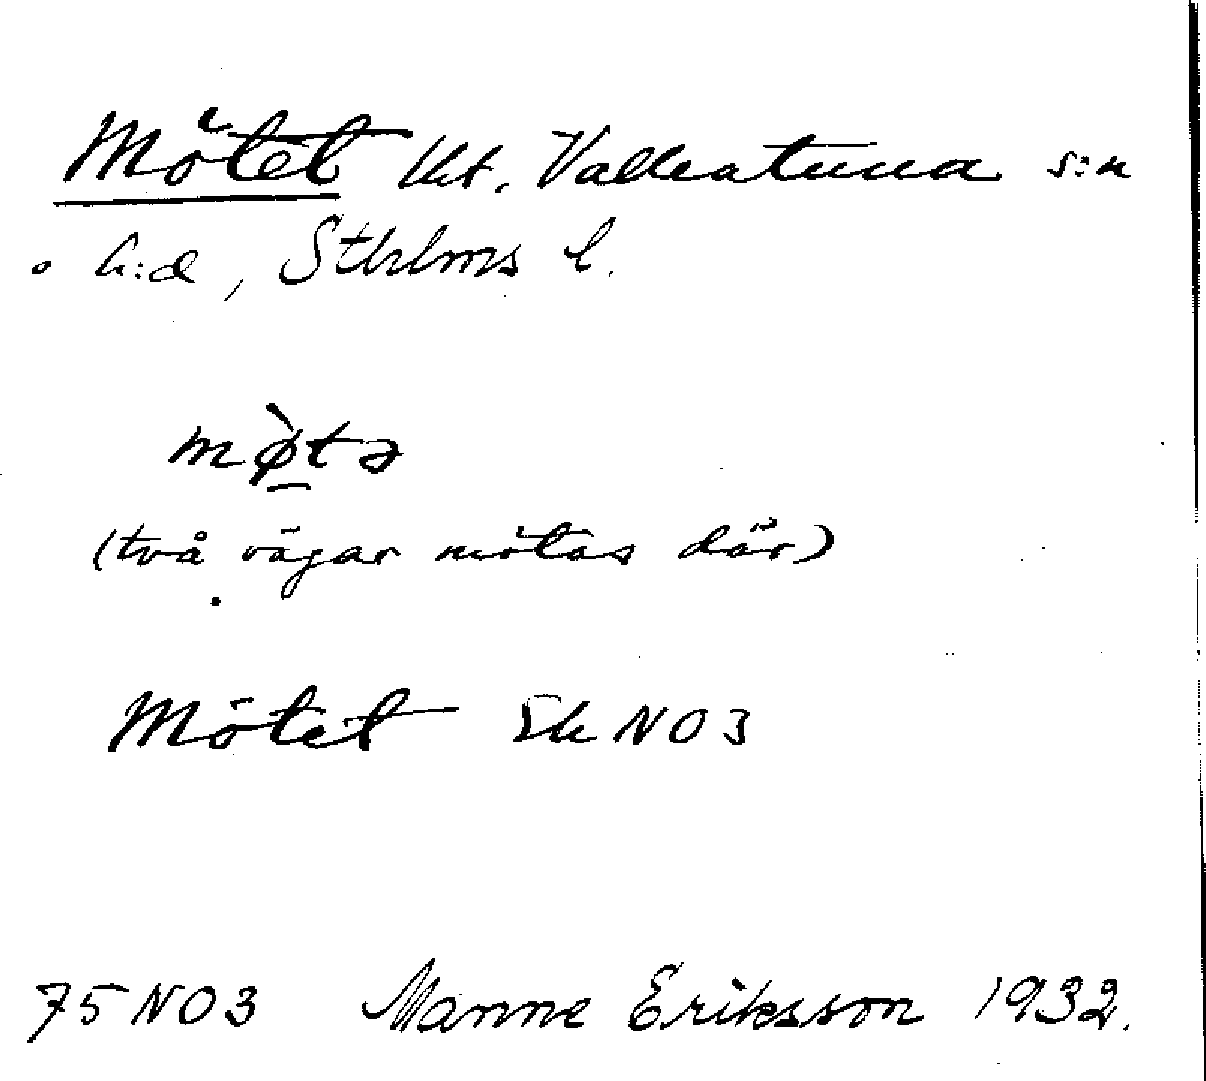 Mötet lht. Vallentuna s:n
o h:d, Sthlms l.
mø̀tə
(två vägar mötas där)
Mötet Ek NO3
75 NO3 Manne Eriksson 1932.